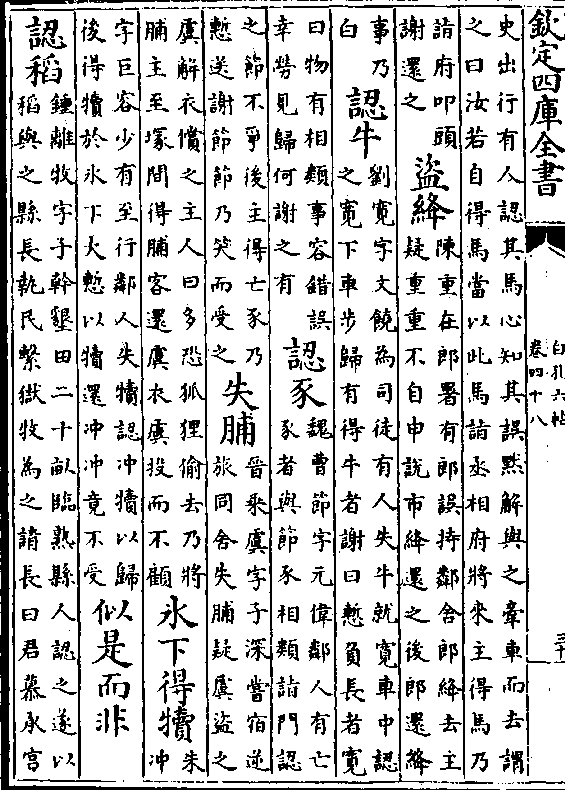 欽定四庫全書
白孔六帖
卷四十八
史出行有人認其馬心知其誤黙解與之牽車而去謂
之曰汝若自得馬當以此馬詣丞相府將來主得馬乃
詣府叩頭
謝還之
盜絳
陳重在郎署有郎誤持鄰舍郎絳去主
疑重重不自申說市絳還之後郎還絳
事乃
白
認牛
劉寛字文饒為司徒有人失牛就寛車中認
之寛下車步歸有得牛者謝曰慙負長者寛
曰物有相類事容錯誤
幸勞見歸何謝之有
認豕
魏曹節字元偉鄰人有亡
豕者與節豕相類詣門認
之節不爭後主得亡豕乃
慙送謝節節乃笑而受之
失脯
晉桒虞字子深嘗宿逆
旅同舍失脯疑虞盜之
虞解衣償之主人曰多恐狐狸偷去乃將
脯主至塚間得脯客還虞衣虞投而不顧
氷下得犢
朱
冲
字巨容少有至行鄰人失犢認冲犢以歸
後得犢於氷下大慙以犢還冲冲竟不受
似是而非
認稻
鍾離牧字子幹墾田二十畝臨熟縣人認之遂以
稻與之縣長執民繫獄牧為之請長曰君慕承宫